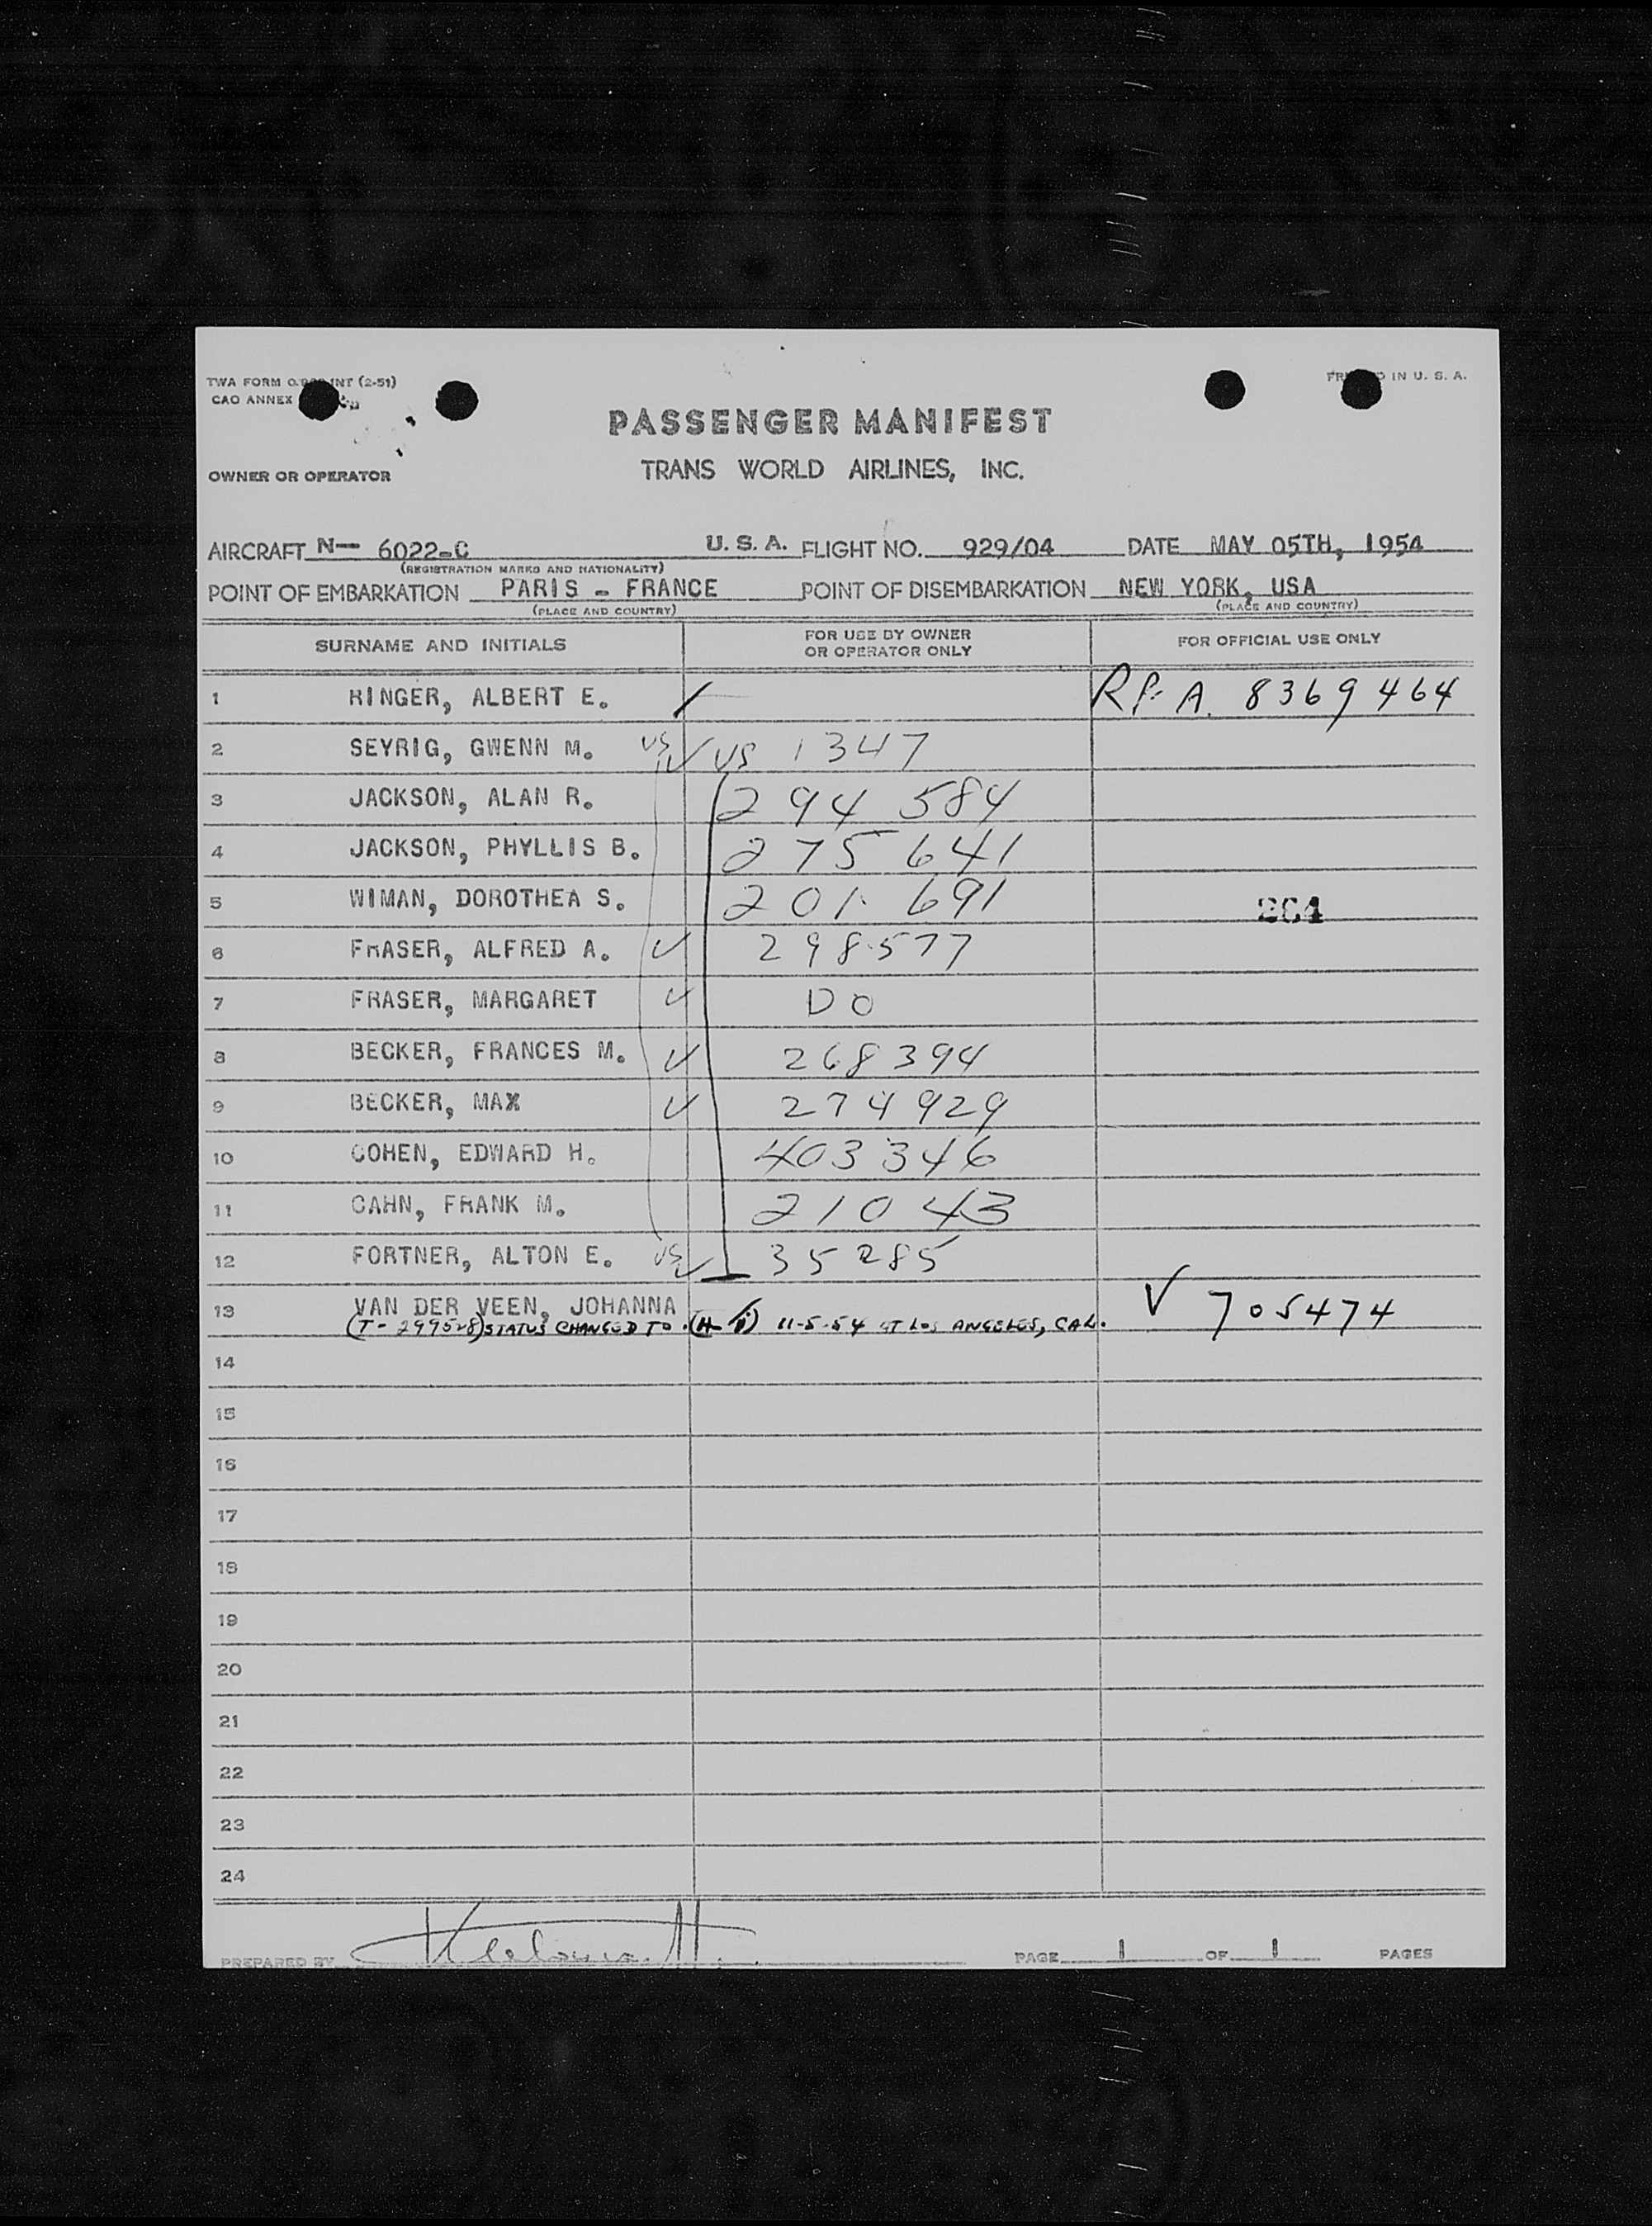 TWA FORM INT (2-51)
CAO ANNEX
IN U. S. A.
PASSENGER MANIFEST
OWNER OR OPERATOR
TRANS WORLD AIRLINES, INC.
AIRCRAFT N— 6022-C U. S. A. FLIGHT NO. 929/04 DATE MAY 05TH, 1954
(REGISTRATION MARKS AND NATIONALITY)
POINT OF EMBARKATION PARIS - FRANCE POINT OF DISEMBARKATION NEW YORK, USA
(PLACE AND COUNTRY) (PLACE AND COUNTRY)
SURNAME AND INITIALS FOR USE BY OWNER OR OPERATOR ONLY FOR OFFICIAL USE ONLY
1 RINGER, ALBERT E. RP. A. 8369464
2 SEYRIG, GWENN M. US ✓ US 1347
3 JACKSON, ALAN R. 294 584
4 JACKSON, PHYLLIS B. 275 641
5 WIMAN, DOROTHEA S. 201 691 264
6 FRASER, ALFRED A. ✓ 298577
7 FRASER, MARGARET ✓ DO
8 BECKER, FRANCES M. ✓ 268394
9 BECKER, MAX ✓ 274929
10 COHEN, EDWARD H. 403346
11 CAHN, FRANK M. 21043
12 FORTNER, ALTON E. US ✓ 35285
13 VAN DER VEEN, JOHANNA V 705474
(T- 299528) STATUS CHANGED TO 11-5-54 AT LOS ANGELES, CAL.
14
15
16
17
18
19
20
21
22
23
24
PREPARED BY PAGE 1 OF 1 PAGES